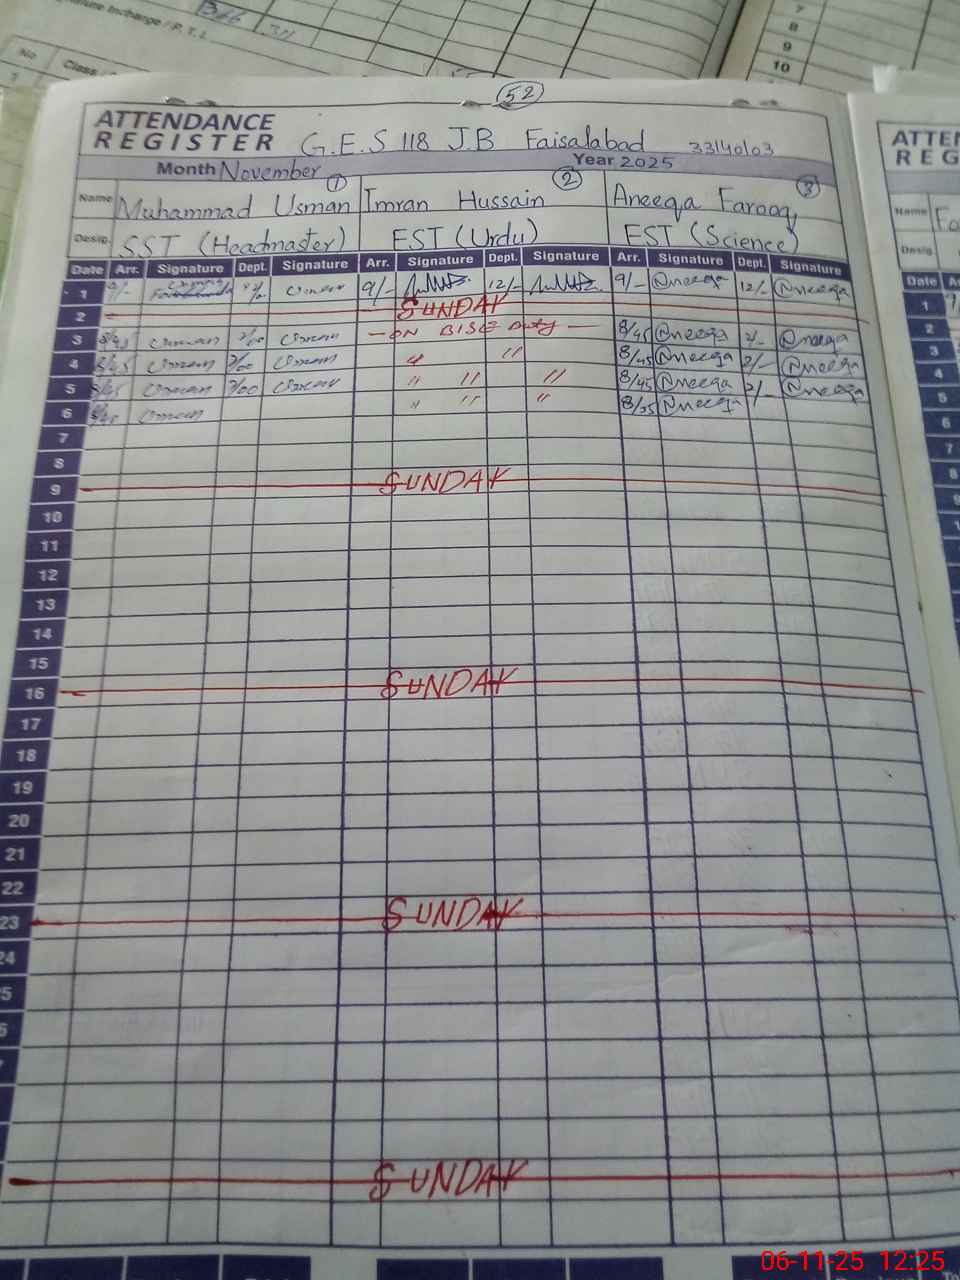 Signature Incharge / P.T.I.
No Class /
7
8
9
10
52
ATTENDANCE
REGISTER G.E.S 118 J.B Faisalabad 33140103
Month November Year 2025
① ② ③
Name Muhammad Usman Imran Hussain Aneeqa Farooq
Desig. SST (Headmaster) EST (Urdu) EST (Science)
Date Arr. Signature Dept. Signature Arr. Signature Dept. Signature Arr. Signature Dept. Signature
1 9/- 9/- 12/- 9/- Aneeqa 12/- Aneeqa
2 SUNDAY
3 8/45 2/00 - ON BISE Duty - 8/45 Aneeqa 2/- Aneeqa
4 8/45 2/00 " " 8/45 Aneeqa 2/- Aneeqa
5 8/45 2/00 " " " 8/45 Aneeqa 2/- Aneeqa
6 8/45 " " " 8/35 Aneeqa
7
8
9 SUNDAY
10
11
12
13
14
15
16 SUNDAY
17
18
19
20
21
22
23 SUNDAY
24
5
6
SUNDAY
ATTEN
REG
Name Fa
Desig
Date A
1
2
3
4
5
6
7
8
9
06-11-25 12:25